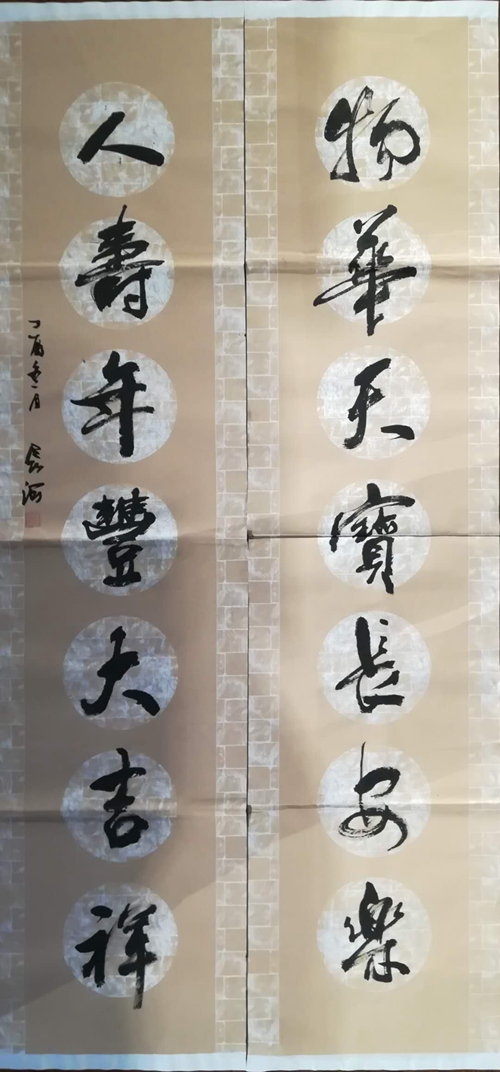 物華天寶長安樂
人壽年豐大吉祥
丁酉
月